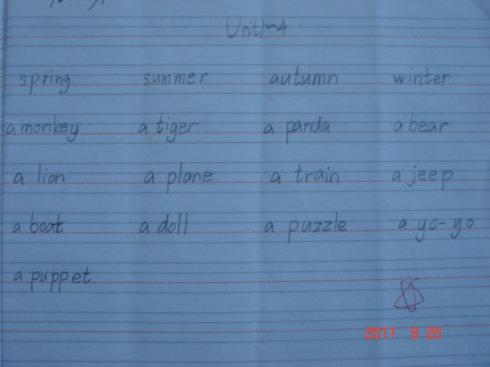 Unit1~4
spring summer autumn winter
a monkey a tiger a panda a bear
a lion a plane a train a jeep
a boat a doll a puzzle a yo-yo
a puppet
2011 8 20